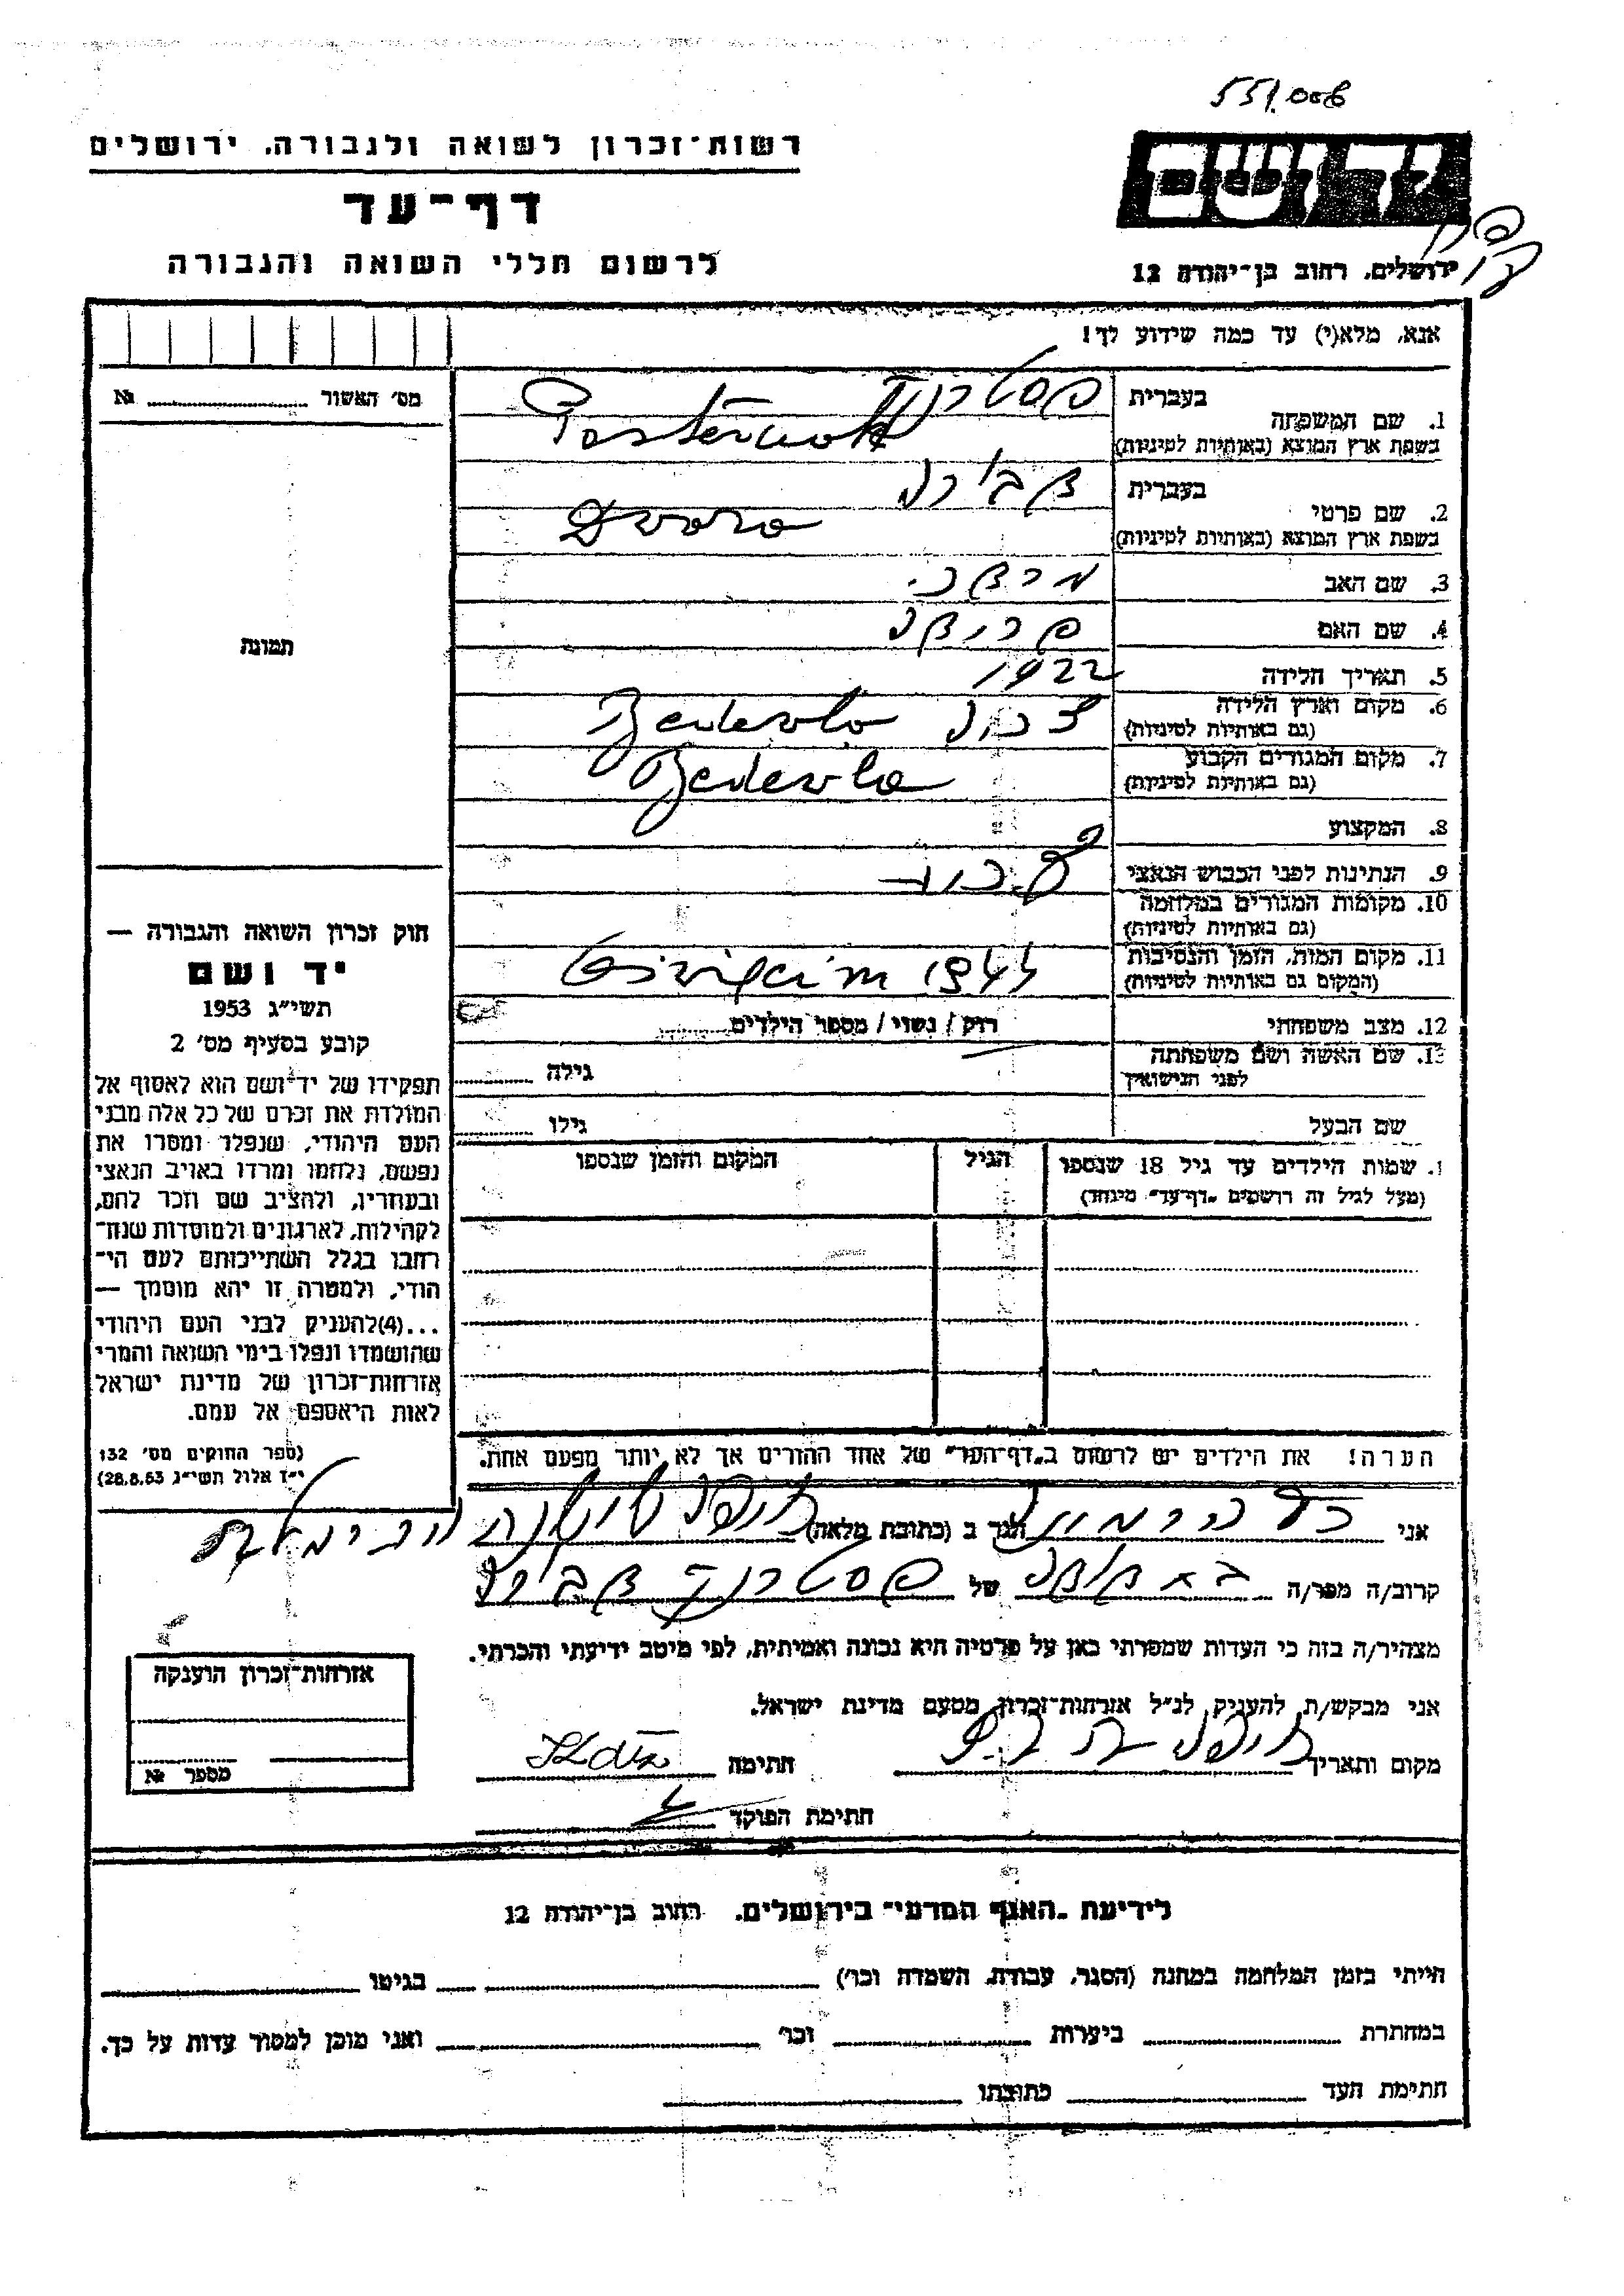 551.006
רשות־זכרון לשואה ולגבורה. ירושלים
דף־עד
לרשום חללי השואה והגבורה
יד ושם
ירושלים. רחוב בן־יהודה 12
אנא, מלא(י) עד כמה שידוע לך!
מס׳ האשור № 
תמונה
1. שם המשפחה
בעברית
בשפת ארץ המוצא (באותיות לטיניות)
Pasternak
2. שם פרטי
בעברית
בשפת ארץ המוצא (באותיות לטיניות)
Dvora
3. שם האב
4. שם האם
5. תאריך הלידה 1922
6. מקום וארץ הלידה
(גם באותיות לטיניות)
Bedevlo
7. מקום המגורים הקבוע
(גם באותיות לטיניות)
Bedevla
8. המקצוע
9. הנתינות לפני הכבוש הנאצי
10. מקומות המגורים במלחמה
(גם באותיות לטיניות)
11. מקום המות, הזמן והנסיבות
(המקום גם באותיות לטיניות)
1944
12. מצב משפחתי רווק / נשוי / מספר הילדים
13. שם האשה ושם משפחתה
לפני הנישואין
גילה
שם הבעל גילו
שמות הילדים עד גיל 18 שנספו הגיל המקום והזמן שנספו
(מעל לגיל זה רושמים „דף־עד״ מיוחד)
הערה! את הילדים יש לרשום ב„דף־העד״ של אחד ההורים אך לא יותר מפעם אחת.
חוק זכרון השואה והגבורה —
יד ושם
תשי״ג 1953
קובע בסעיף מס׳ 2
תפקידו של יד־ושם הוא לאסוף אל
המולדת את זכרם של כל אלה מבני
העם היהודי, שנפלו ומסרו את
נפשם, נלחמו ומרדו באויב הנאצי
ובעוזריו, ולהציב שם וזכר להם,
לקהילות, לארגונים ולמוסדות שנח־
רבו בגלל השתייכותם לעם הי־
הודי, ולמטרה זו יהא מוסמך —
...(4)להעניק לבני העם היהודי
שהושמדו ונפלו בימי השואה והמרי
אזרחות־זכרון של מדינת ישראל
לאות היאספם אל עמם.
(ספר החוקים מס׳ 132
י״ז אלול תשי״ג 28.8.53)
אני הגר ב (כתובת מלאה)
קרוב/ה מכר/ה של פסטרנק
מצהיר/ה בזה כי העדות שמסרתי כאן על פרטיה היא נכונה ואמיתית, לפי מיטב ידיעתי והכרתי.
אני מבקש/ת להעניק לנ״ל אזרחות־זכרון מטעם מדינת ישראל.
מקום ותאריך חתימה
חתימת הפוקד
אזרחות־זכרון הוענקה
מספר №
לידיעת „האגף המדעי״ בירושלים. רחוב בן־יהודה 12
הייתי בזמן המלחמה במחנה (הסגר, עבודה, השמדה וכו׳) בגיטו
במחתרת ביערות וכו׳ ואני מוכן למסור עדות על כך.
חתימת העד כתובתו